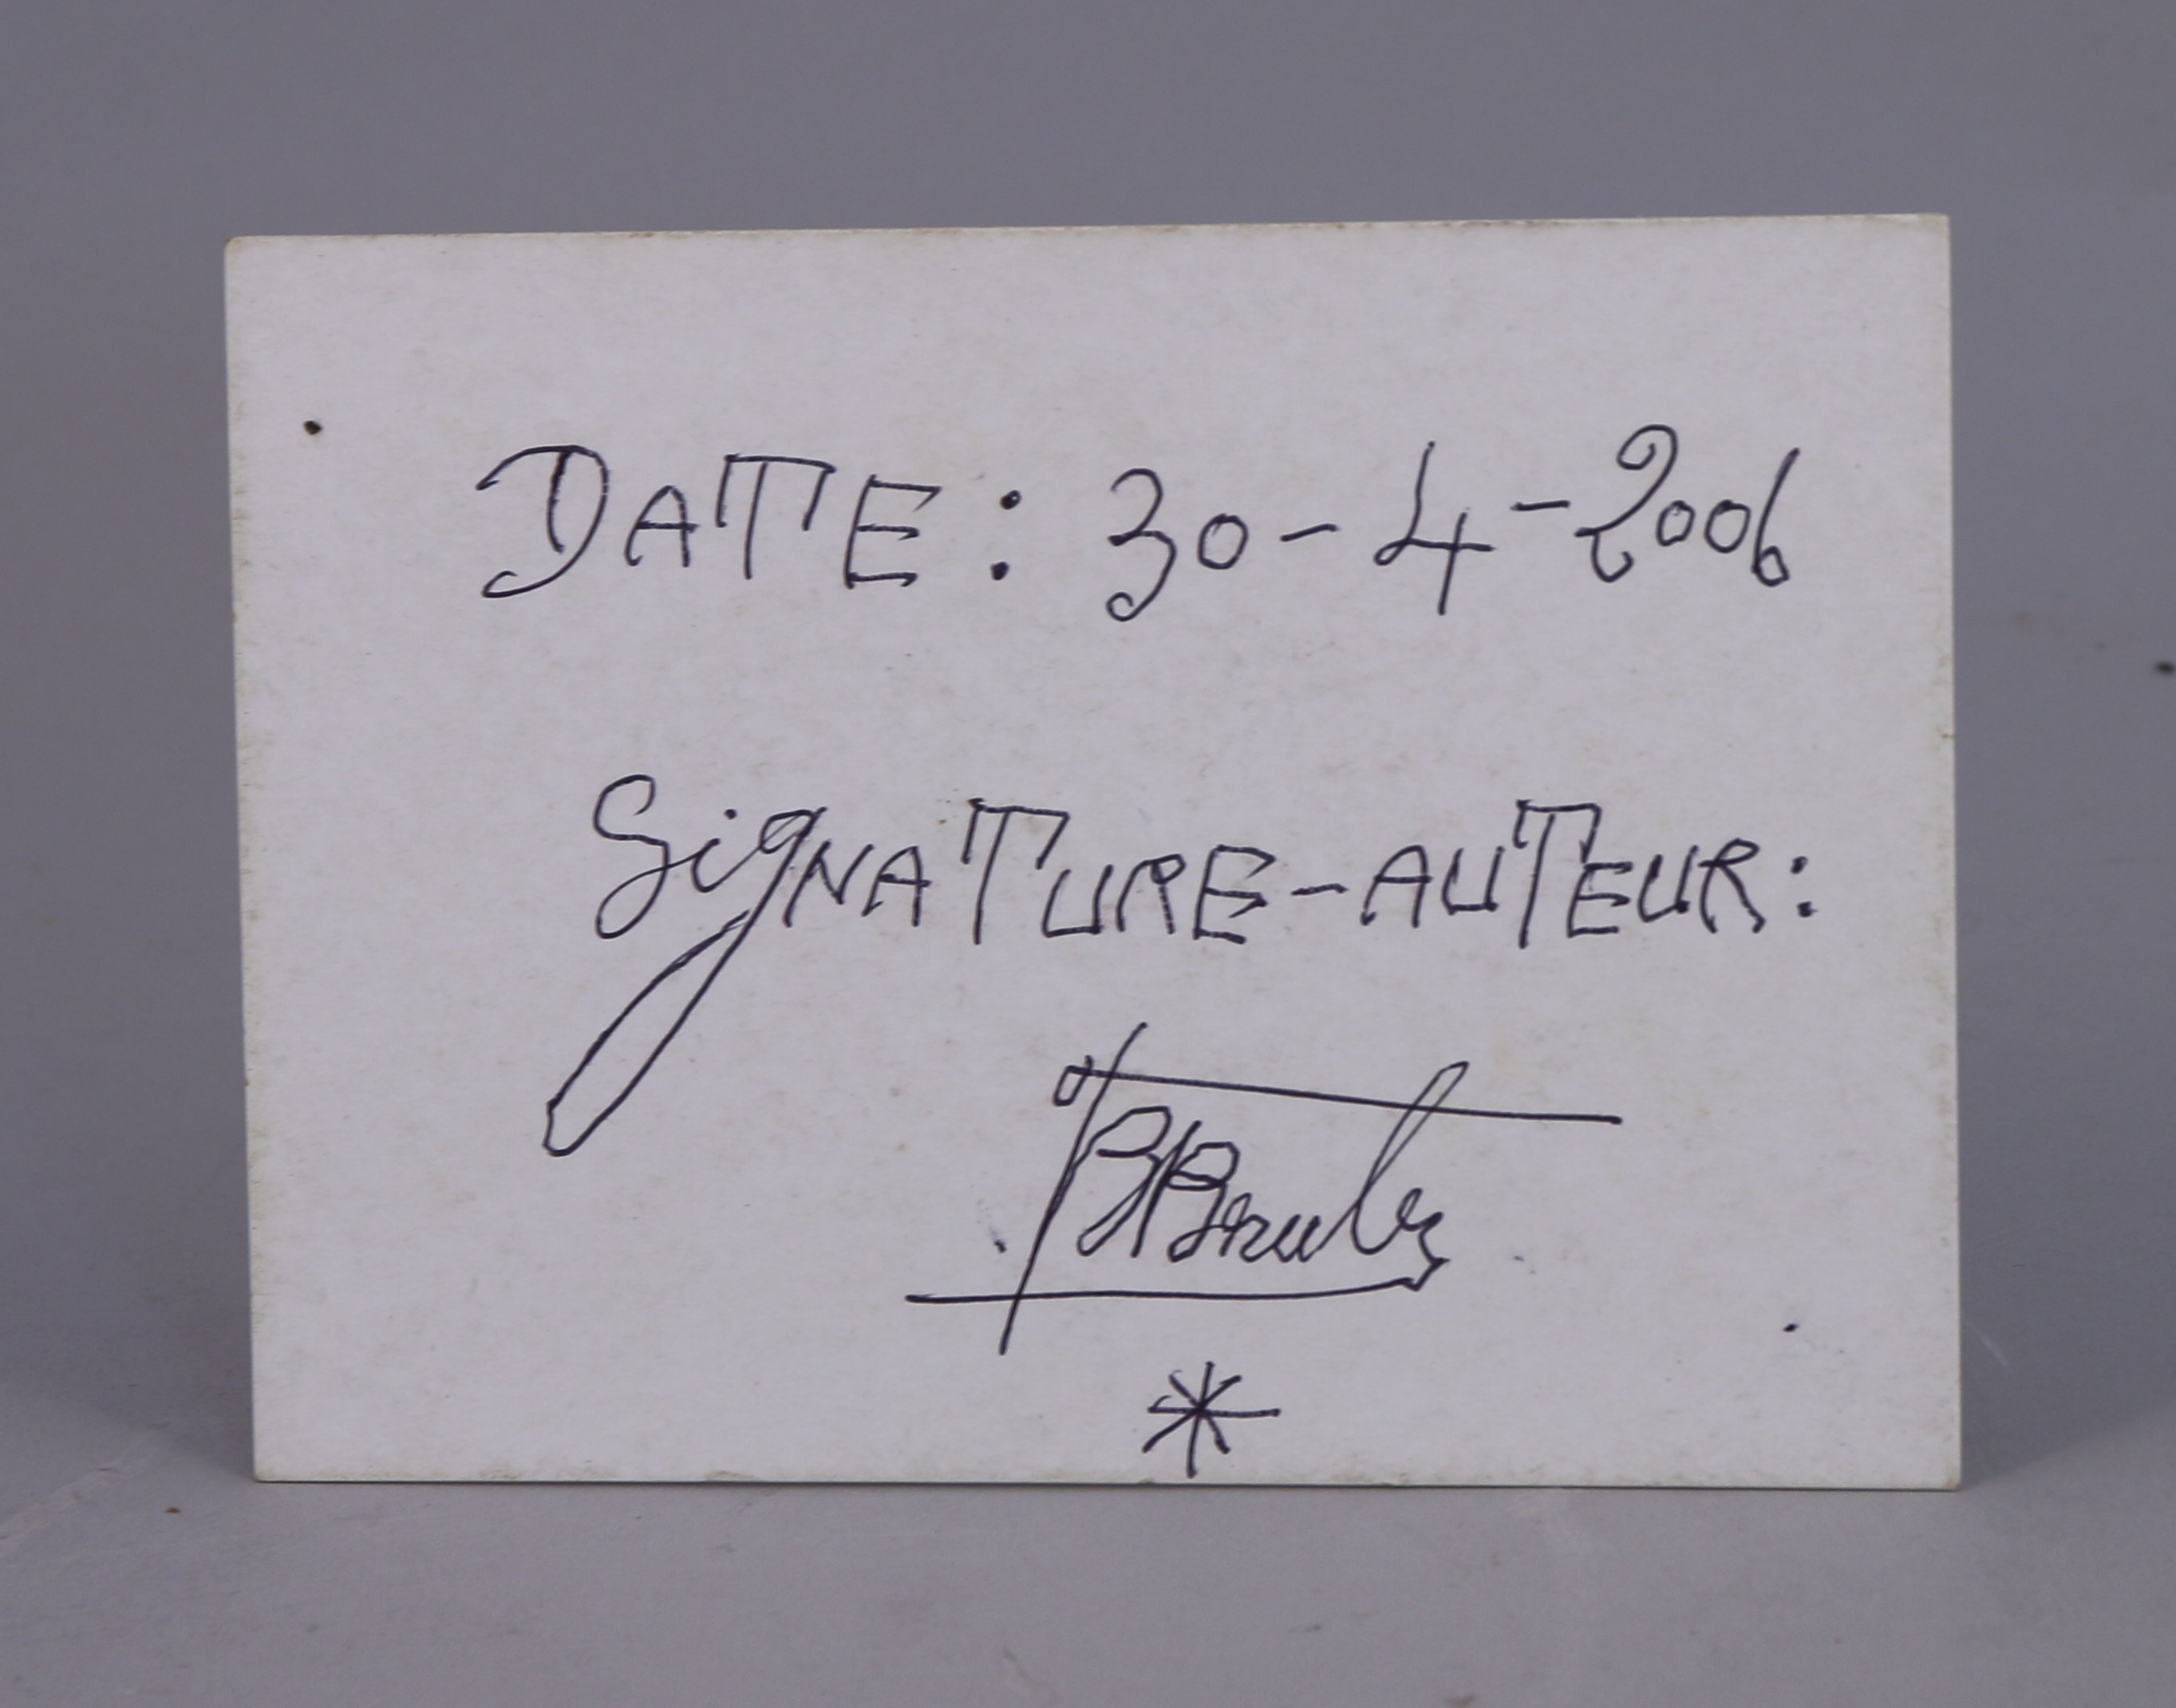 DATE : 30-4-2006
SigNATURE-AUTEUR: